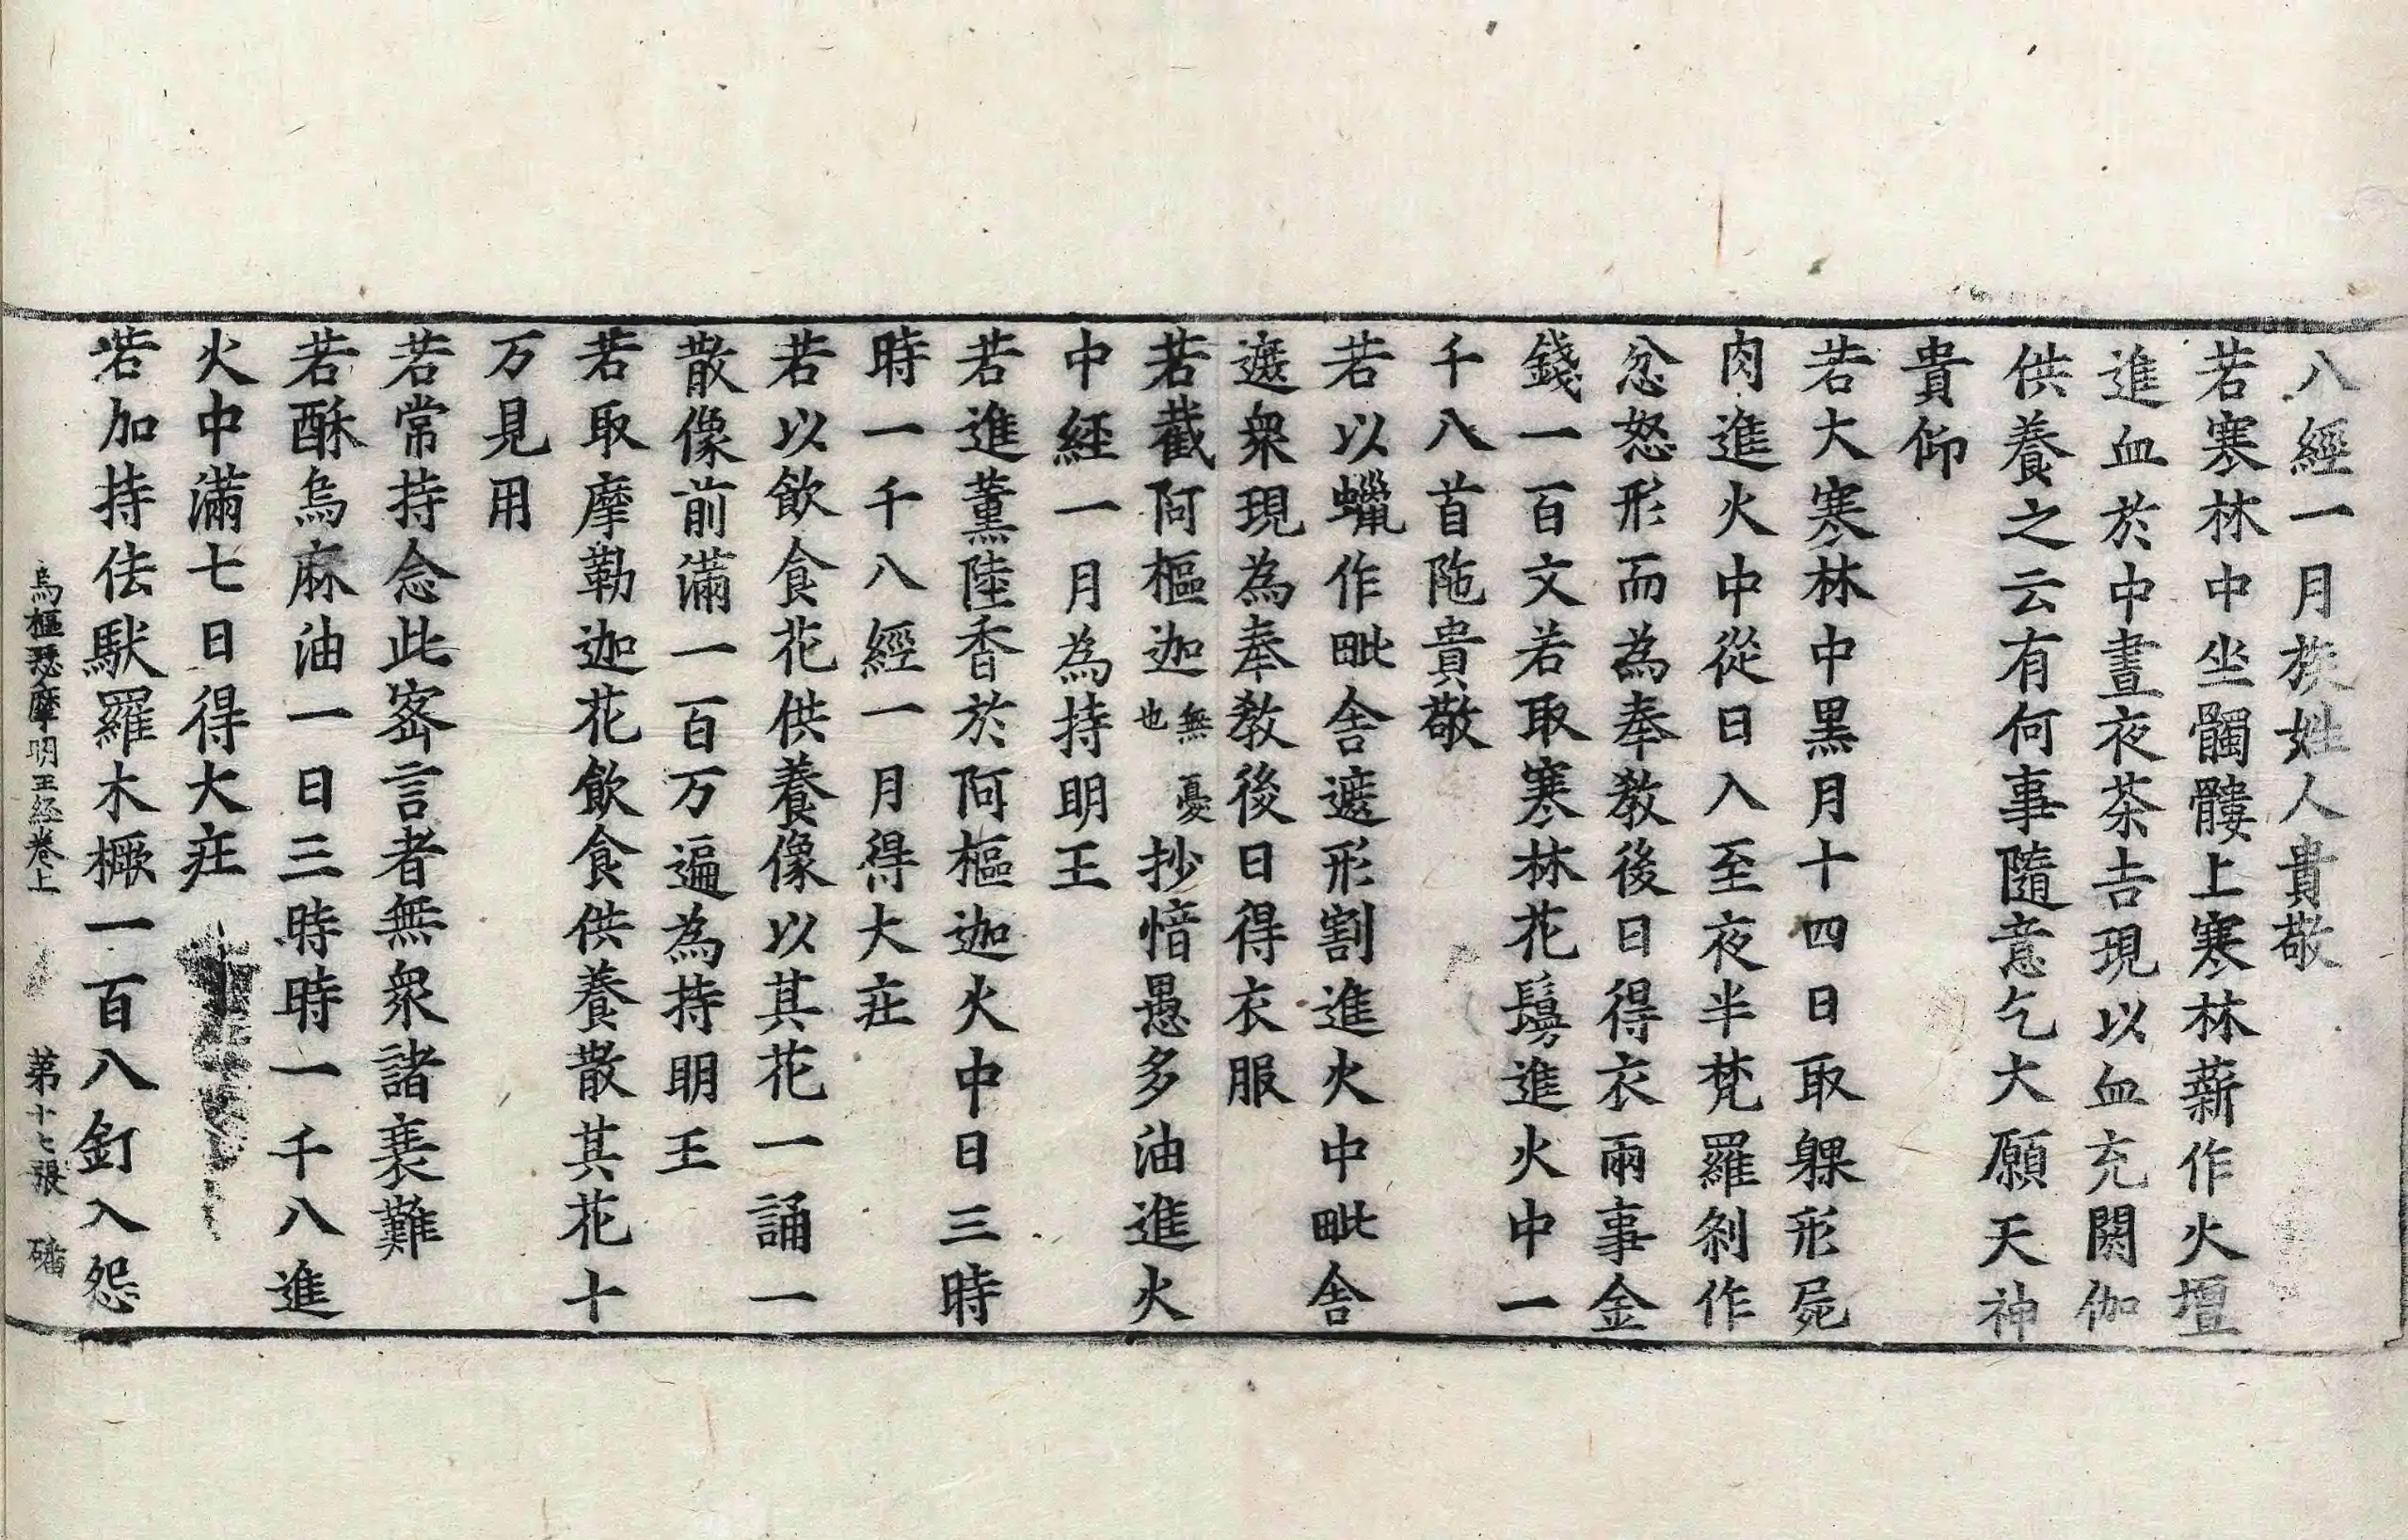 八經一月族姓人貴敬
若寒林中坐髑髏上寒林薪作火壇
進血於中晝夜茶吉現以血充閼伽
供養之云有何事隨意乞大願天神
貴仰
若大寒林中黑月十四日取躶形屍
肉進火中從日入至夜半梵羅刹作
忿怒形而為奉教後日得衣兩事金
錢一百文若取寒林花鬘進火中一
千八首陁貴敬
若以蠟作毗舍遮形割進火中毗舍
遮衆現為奉教後日得衣服
若截阿樞迦無憂也抄愔愚多油進火
中經一月為持明王
若進薰陸香於阿樞迦火中日三時
時一千八經一月得大疘
若以飲食花供養像以其花一誦一
散像前滿一百万遍為持明王
若取摩勒迦花飲食供養散其花十
万見用
若常持念此宻言者無衆諸裹難
若酥烏麻油一日三時時一千八進
火中滿七日得大疘
若加持佉馱羅木橛一百八釘入怨
烏樞瑟摩明王经卷上 第十七張 磻